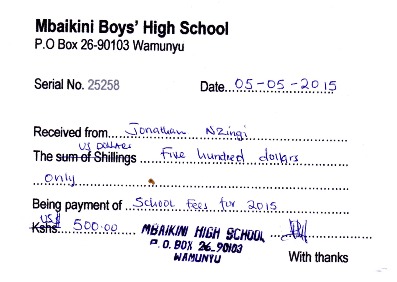 Mbaikini Boys' High School
P.O Box 26-90103 Wamunyu
Serial No. 25258 Date 05-05-2015
Received from Jonathan Nzingi
US Dollars
The sum of Shillings Five hundred dollars
only
Being payment of School Fees for 2015
US$
Kshs. 500.00
MBAIKINI HIGH SCHOOL
P.O. BOX 26-90103
WAMUNYU
With thanks